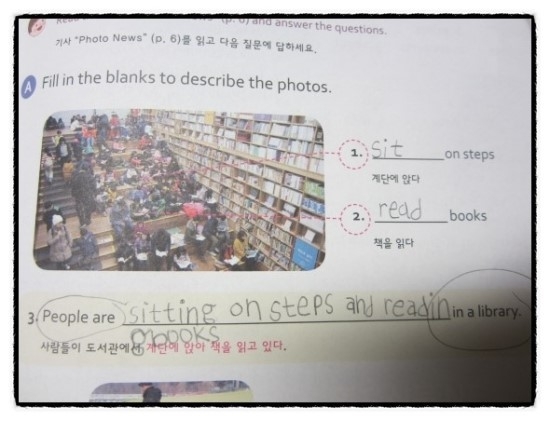 (p. 6) and answer the questions.
기사 "Photo News" (p. 6)를 읽고 다음 질문에 답하세요.
A Fill in the blanks to describe the photos.
1. sit on steps
계단에 앉다
2. read books
책을 읽다
3. People are sitting on steps and readin in a library.
books
사람들이 도서관에서 계단에 앉아 책을 읽고 있다.